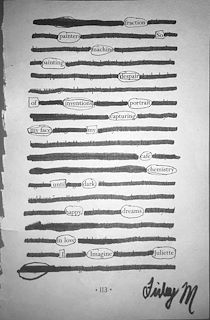 fraction
painters So
machine
painting
despair
of inventions portrait
capturing
my face my
cafe
chemistry
until dark
happy dreams
in love
I Imagine Juliette
· 113 ·